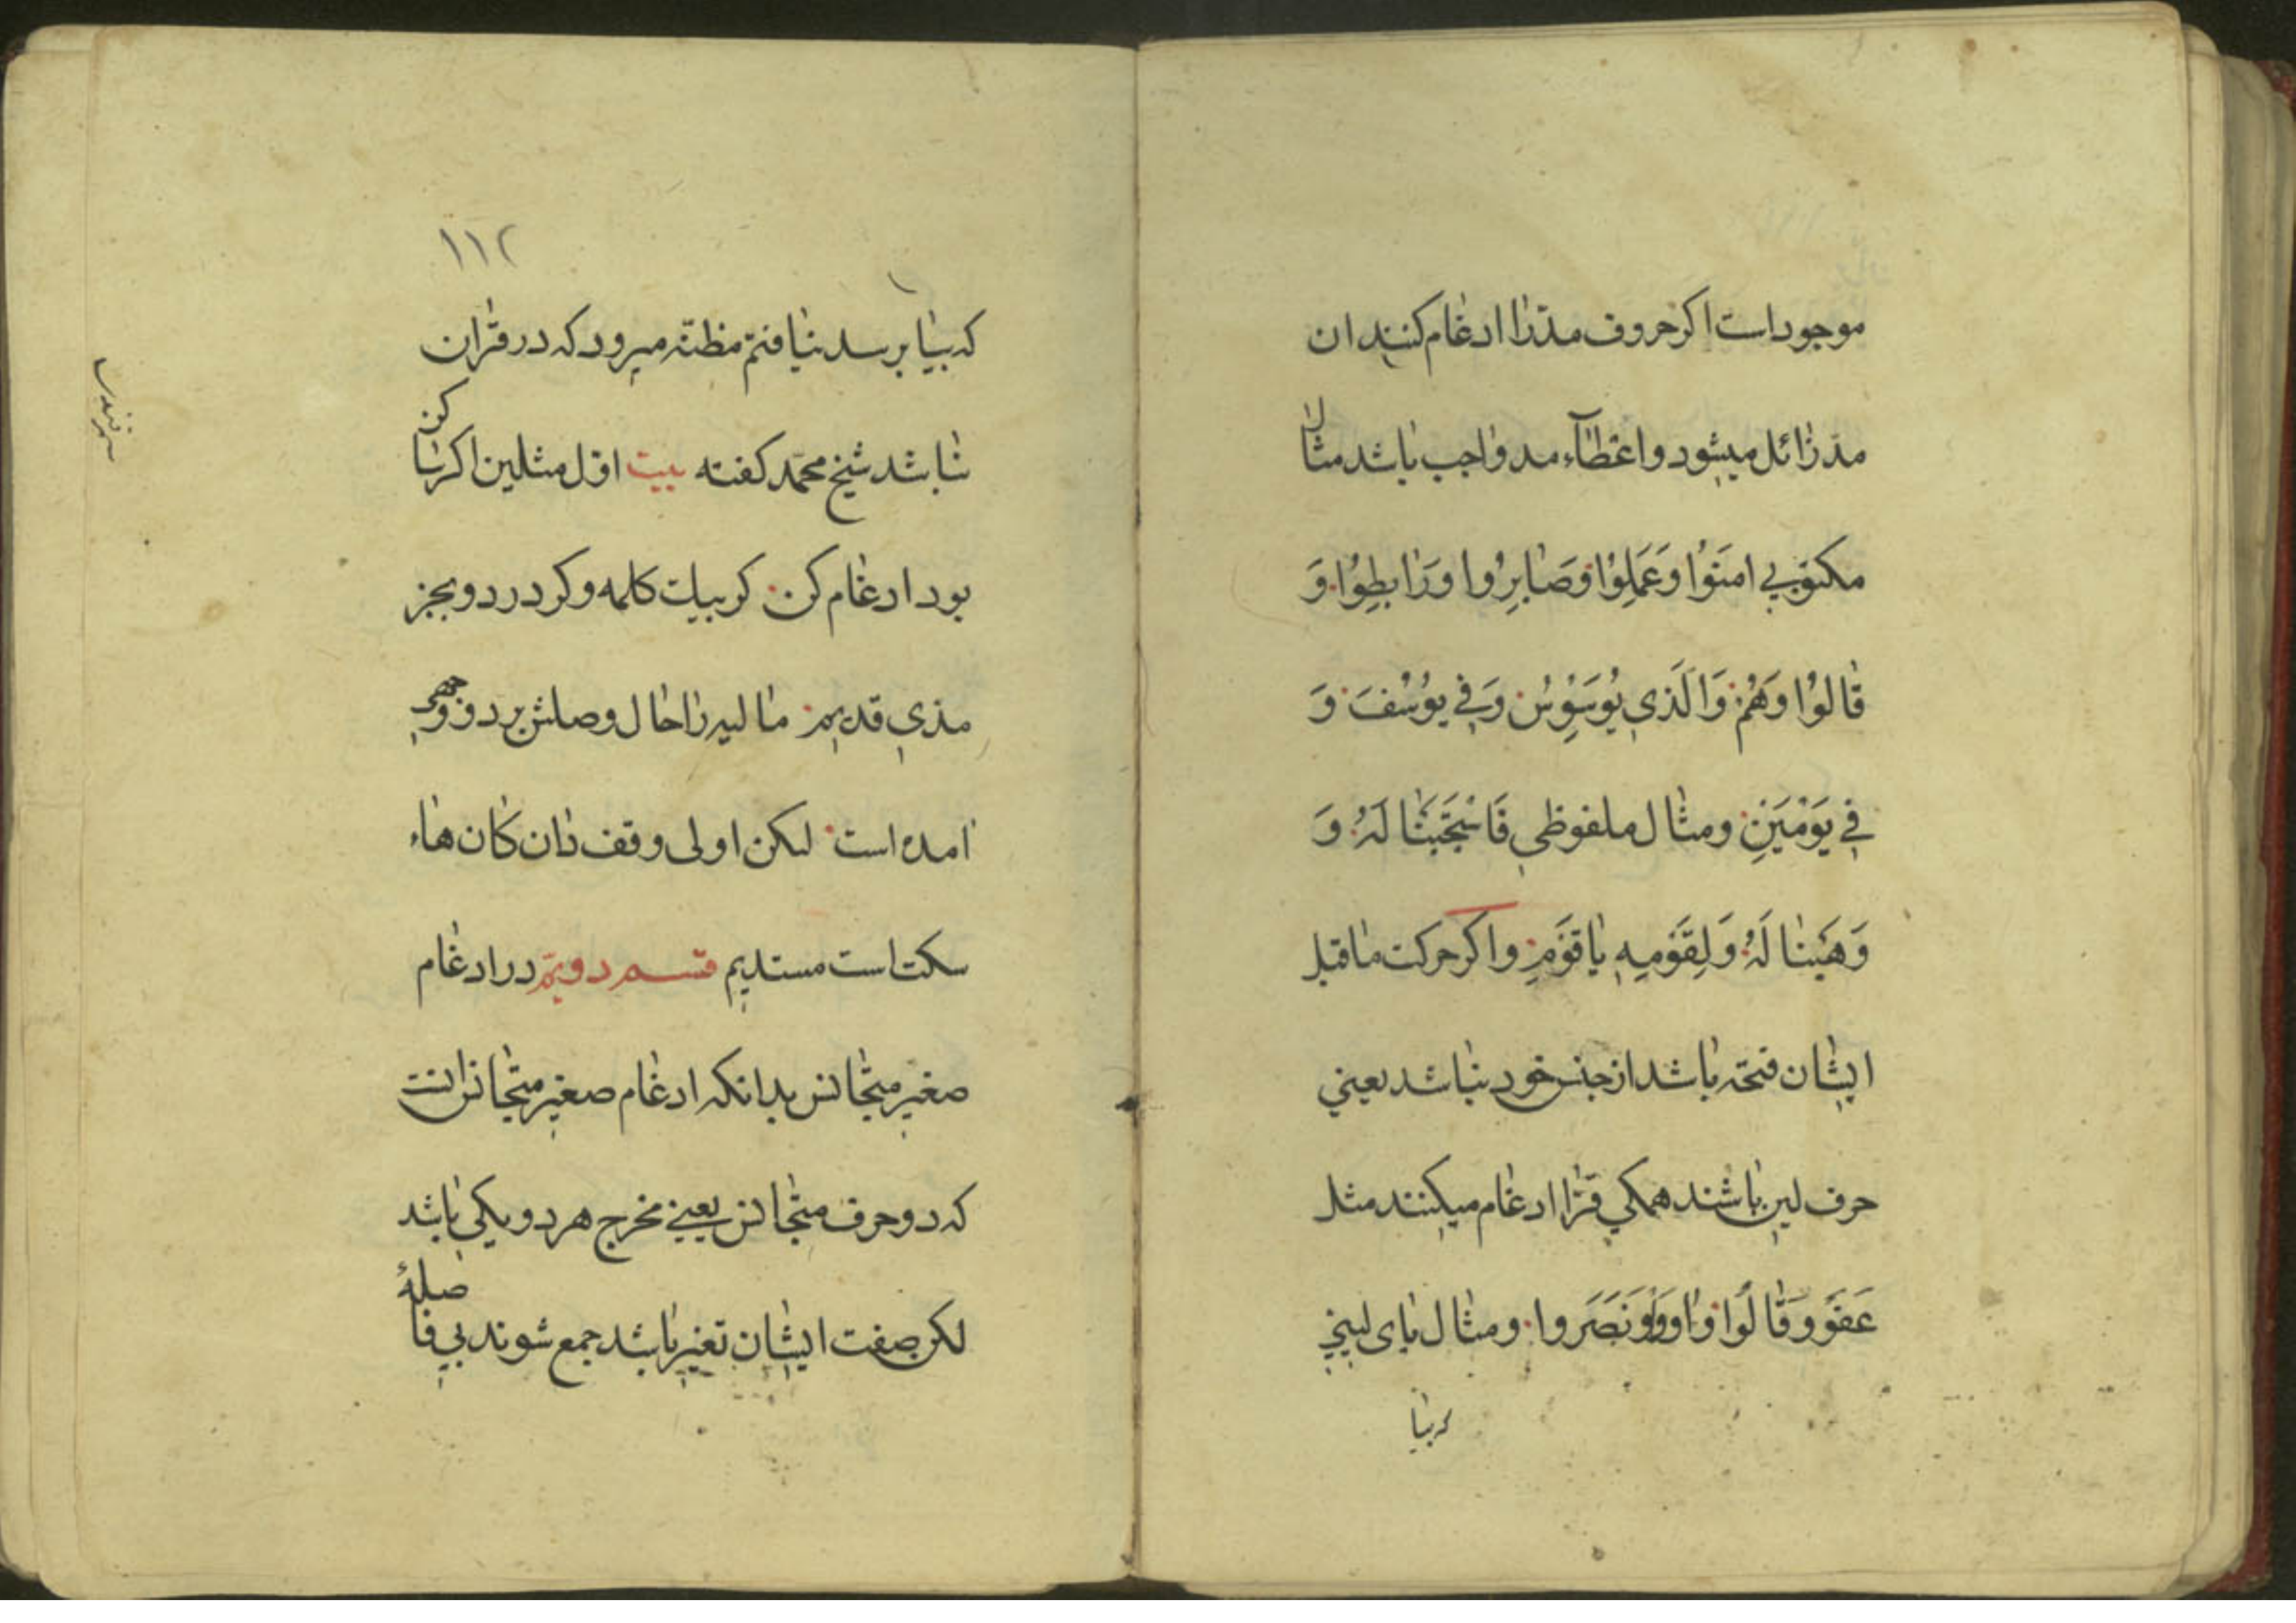 موجود است اکر حروف مدّ را ادغام کنند ان
مدّ زائل میشود و اعطآء مد واجب باشد مثال
مکتوبی امَنوُا وَعَمَلِوُا وَصَابِرُوا وَرَابِطِوُا وَ
قالوُا وَهُمْ وَالَّذي يُوَسْوِسُ وَفي يوُسُفَ وَ
في يَوْمَيَنِ ومثال ملفوظي فَاسْتَجَبَنْا لَهُ وَ
وَهَبْنا لَهُ وَلِقَوْمِهِ يا قَوْمِ واکر حرکت ماقبل
ایشان فتحه باشد از جنس خود نباشد یعنی
حرف لین باشند همکی قرّا ادغام میکنند مثل
عَفَوْ وَقالُوا وَاوَوْ وَنَصَرَوا ومثال یای لینی
که بیا
۱۱۲
که بیا برسد نیافتم مظنّه میرود که در قرآن
نباشد شیخ محمّد کفته بیت اوّل مثلین اکر ساکن
بود ادغام کن کر بیک کلمه و کر در دو بجز
مذی قدیم مالیه را حال وصلش بر دو وجهی
امده است لیکن اولی وقف دان کان هاء
سکت است مستدیم قسم دویّم در ادغام
صغیر متجانس بدانکه ادغام صغیر متجانس انست
که دو حرف متجانس یعنی مخرج هر دو یکی باشد
لکن صفت ایشان تغیر باشد جمع شوند بی فاصلهٔ